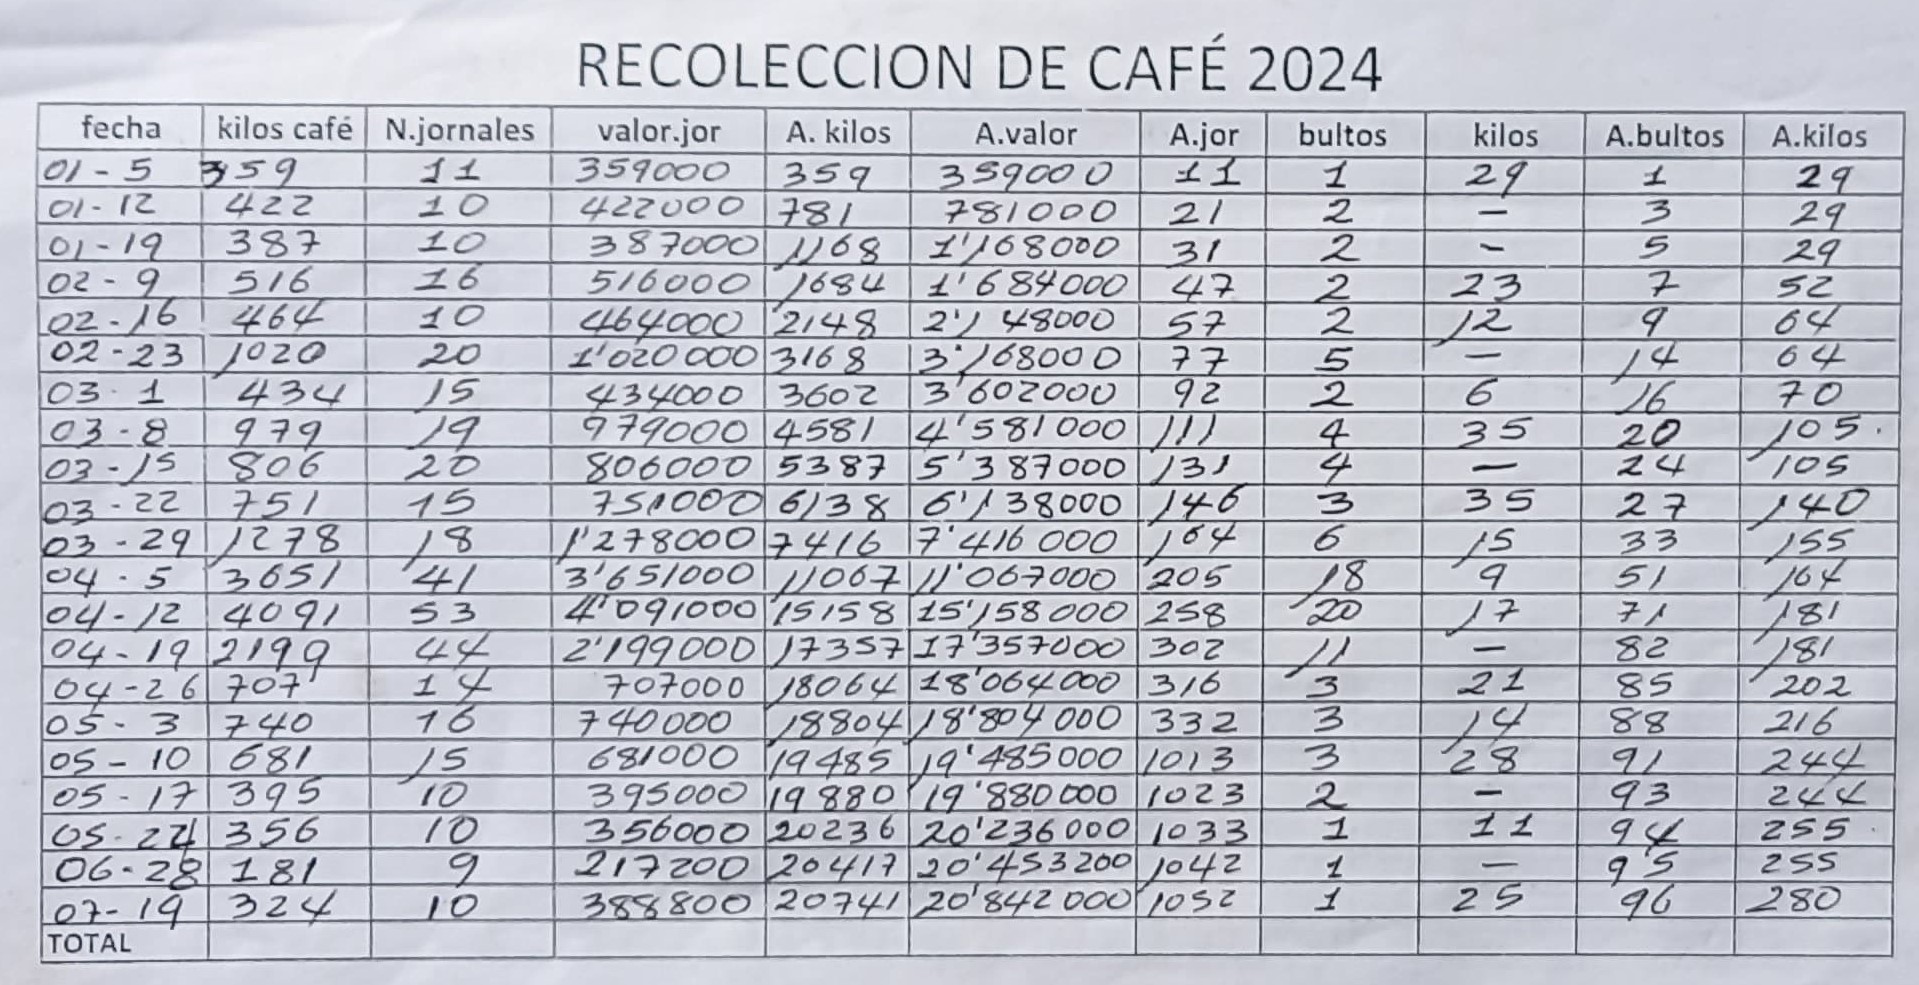 RECOLECCION DE CAFÉ 2024
fecha kilos café N.jornales valor.jor A. kilos A.valor A.jor bultos kilos A.bultos A.kilos
01-5 359 11 359000 359 359000 11 1 29 1 29
01-12 422 10 422000 781 781000 21 2 – 3 29
01-19 387 10 387000 1168 1'168000 31 2 – 5 29
02-9 516 16 516000 1684 1'684000 47 2 23 7 52
02-16 464 10 464000 2148 2'148000 57 2 12 9 64
02-23 1020 20 1'020000 3168 3'168000 77 5 – 14 64
03-1 434 15 434000 3602 3'602000 92 2 6 16 70
03-8 979 19 979000 4581 4'581000 111 4 35 20 105.
03-15 806 20 806000 5387 5'387000 131 4 – 24 105
03-22 751 15 751000 6138 6'138000 146 3 35 27 140
03-29 1278 18 1'278000 7416 7'416000 164 6 15 33 155
04-5 3651 41 3'651000 11067 11'067000 205 18 9 51 164
04-12 4091 53 4'091000 15158 15'158000 258 20 17 71 181
04-19 2199 44 2'199000 17357 17'357000 302 11 – 82 181
04-26 707 14 707000 18064 18'064000 316 3 21 85 202
05-3 740 16 740000 18804 18'804000 332 3 14 88 216
05-10 681 15 681000 19485 19'485000 1013 3 28 91 244
05-17 395 10 395000 19880 19'880000 1023 2 – 93 244
05-24 356 10 356000 20236 20'236000 1033 1 11 94 255
06-28 181 9 217200 20417 20'453200 1042 1 – 95 255
07-19 324 10 388800 20741 20'842000 1052 1 25 96 280
TOTAL